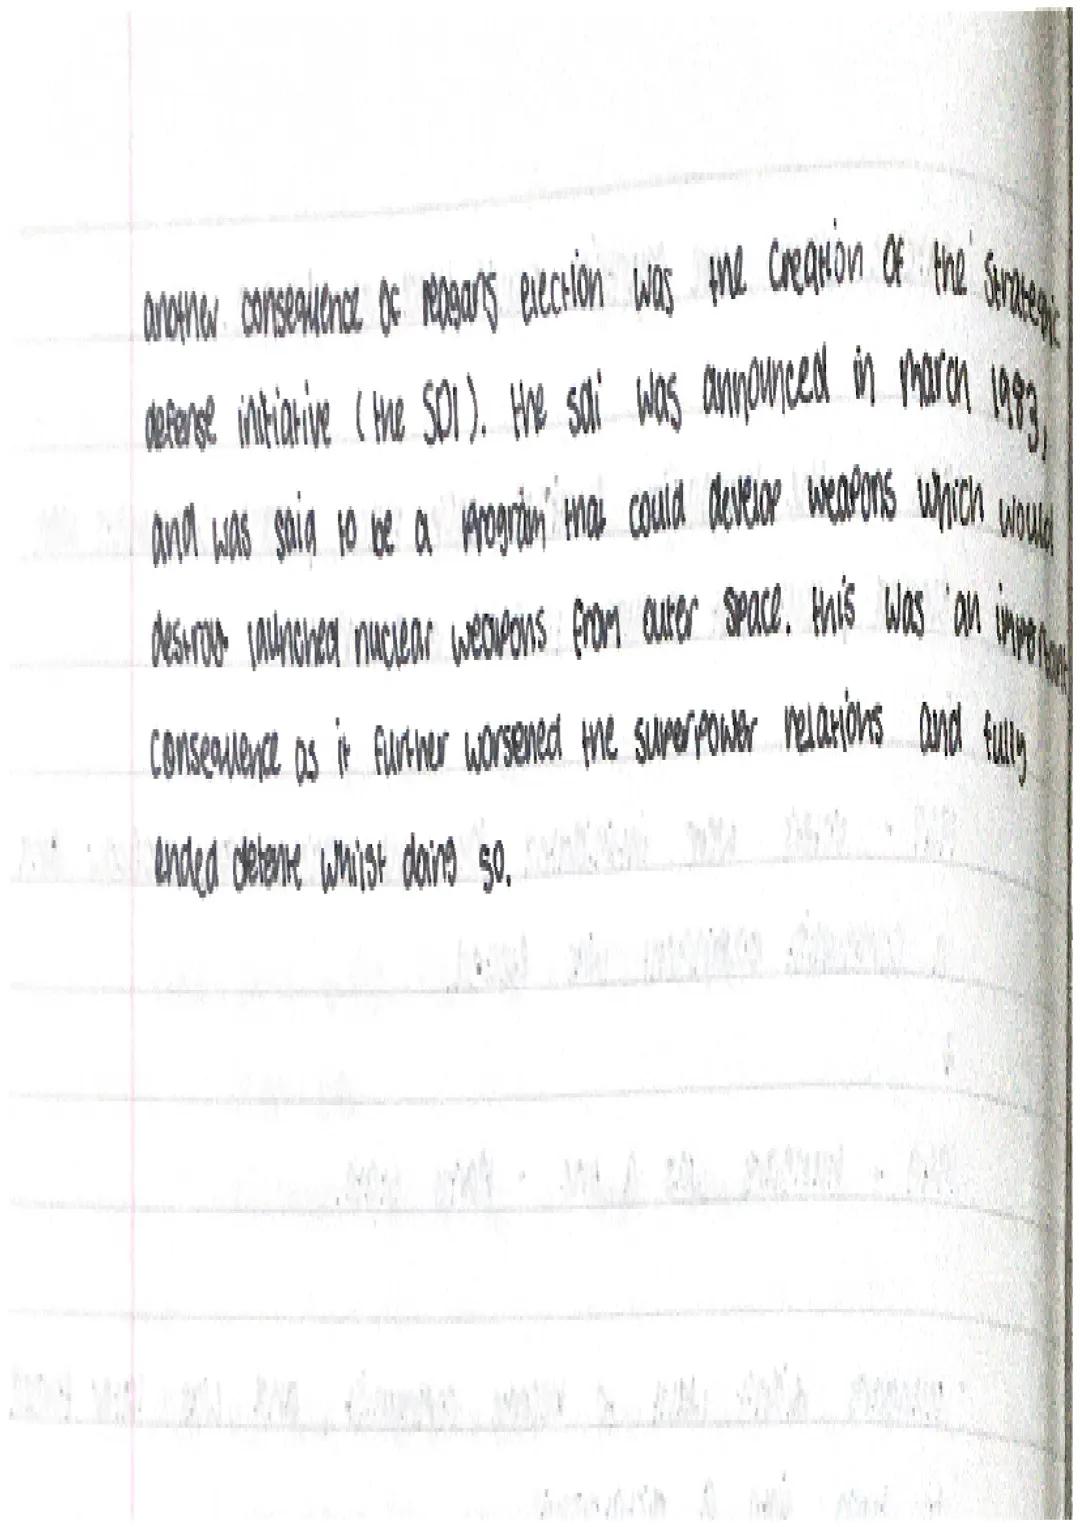 another consequence of reagan's election was the creation of the Strategic
defense initiative (the SDI). the sdi was announced in march 1983,
and was said to be a program that could develop weapons which would
destroy launched nuclear weapons from outer space. this was an important
consequence as it further worsened the superpower relations and fully
ended detente whilst doing so.